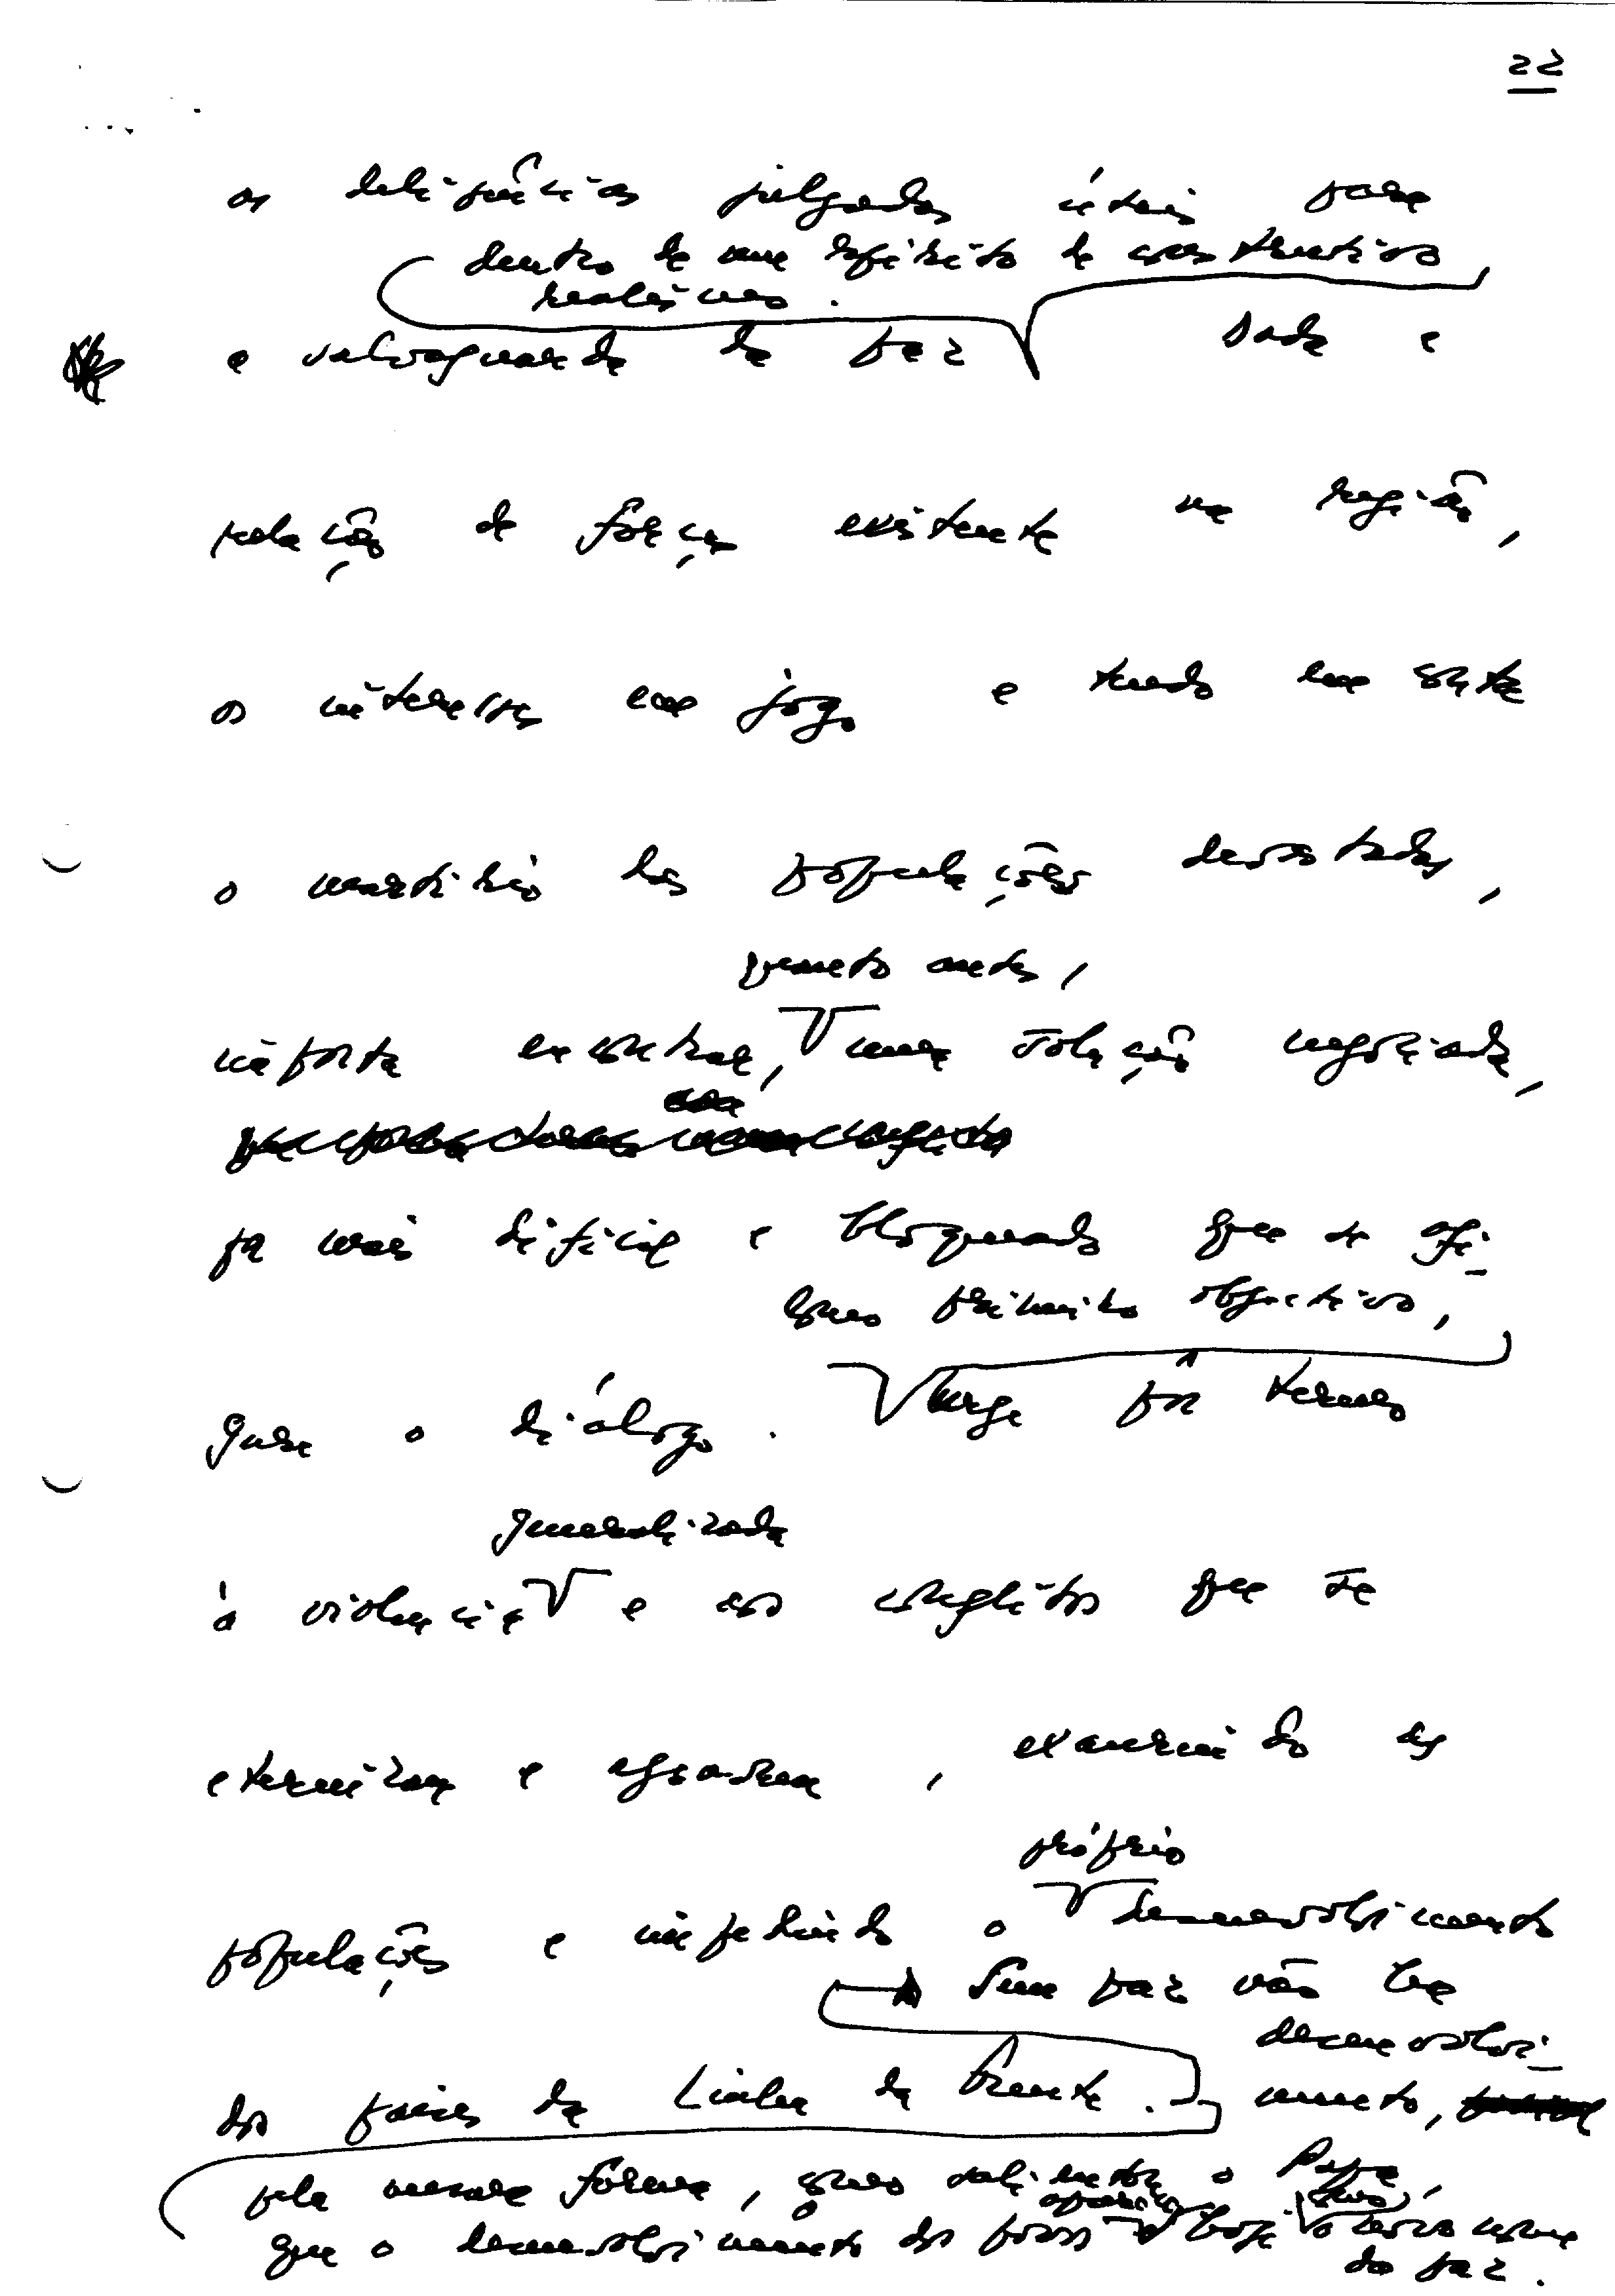 22
as diligências julgadas úteis para
dentro de um espírito de construtivo
realismo.
a salvaguarda da paz dada a
relação de forças existente na região,
os interesses em jogo e tendo em conta
o martírio das populações devastadas,
quanto antes,
importa encontrar, uma solução negociada,
por mais difícil e bloqueado que se afi-
como primeiro objectivo,
gure o diálogo. Urge pôr termo
generalizada
à violência e aos conflitos que se
eternizam e agravam, exaurindo as
próprio
populações e impedindo o desenvolvimento
Sem paz não há
desenvolvi-
dos países da Linha da Frente. mento,
pela mesma forma, como salientou o Papa,
que o desenvolvimento dos povos hoje o novo nome
da paz.